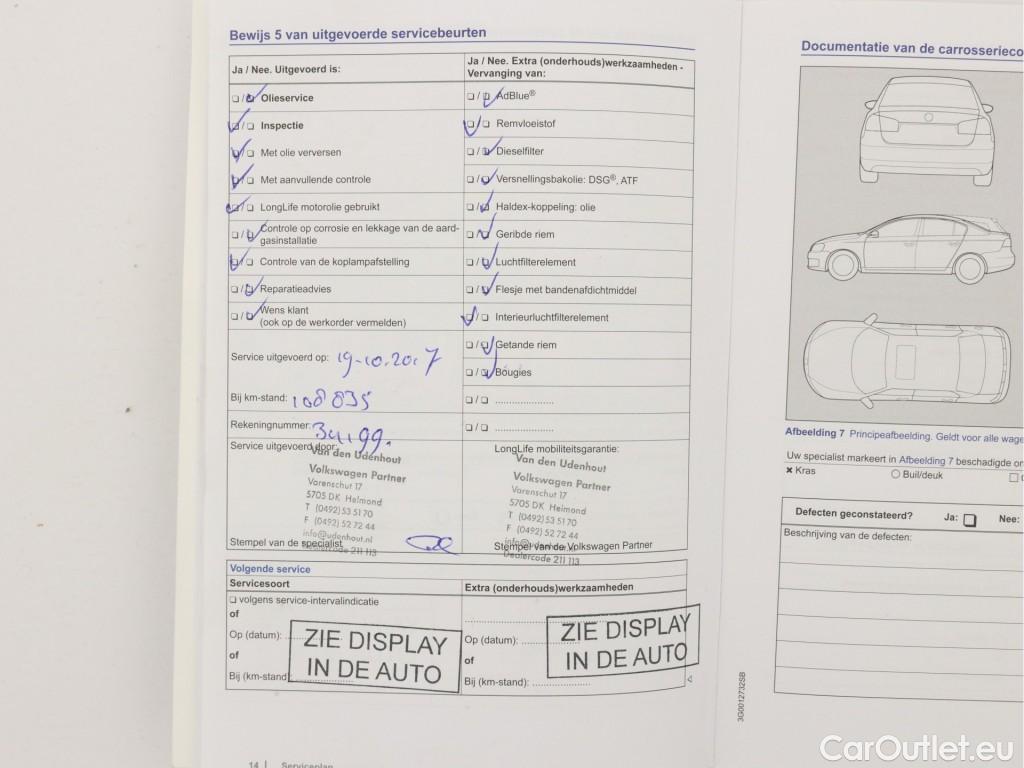 Bewijs 5 van uitgevoerde servicebeurten
Ja / Nee. Uitgevoerd is:
❑ / ❑ Olieservice
❑ / ❑ Inspectie
❑ / ❑ Met olie verversen
❑ / ❑ Met aanvullende controle
❑ / ❑ LongLife motorolie gebruikt
❑ / ❑ Controle op corrosie en lekkage van de aard-
gasinstallatie
❑ / ❑ Controle van de koplampafstelling
❑ / ❑ Reparatieadvies
❑ / ❑ Wens klant
(ook op de werkorder vermelden)
Service uitgevoerd op: 19-10.2017
Bij km-stand: 108835
Rekeningnummer:
Service uitgevoerd door:
Van den Udenhout
Volkswagen Partner
Varenschut 17
5705 DK Helmond
T (0492) 53 51 70
F (0492) 52 72 44
info@udenhout.nl
Dealercode 211 113
Stempel van de specialist
Ja / Nee. Extra (onderhouds)werkzaamheden -
Vervanging van:
❑ / ❑ AdBlue®
❑ / ❑ Remvloeistof
❑ / ❑ Dieselfilter
❑ / ❑ Versnellingsbakolie: DSG®, ATF
❑ / ❑ Haldex-koppeling: olie
❑ / ❑ Geribde riem
❑ / ❑ Luchtfilterelement
❑ / ❑ Flesje met bandenafdichtmiddel
❑ / ❑ Interieurluchtfilterelement
❑ / ❑ Getande riem
❑ / ❑ Bougies
❑ / ❑ ....................
❑ / ❑ ....................
LongLife mobiliteitsgarantie:
Van den Udenhout
Volkswagen Partner
Varenschut 17
5705 DK Helmond
T (0492) 53 51 70
F (0492) 52 72 44
info@udenhout.nl
Dealercode 211 113
Stempel van de Volkswagen Partner
Volgende service
Servicesoort
❑ volgens service-intervalindicatie
of
Op (datum):
of
Bij (km-stand):
ZIE DISPLAY
IN DE AUTO
Extra (onderhouds)werkzaamheden
Op (datum):
of
Bij (km-stand): ....................
ZIE DISPLAY
IN DE AUTO
14 | Serviceplan
Documentatie van de carrosserieco
Afbeelding 7 Principeafbeelding. Geldt voor alle wage
Uw specialist markeert in Afbeelding 7 beschadigde
× Kras ○ Buil/deuk
Defecten geconstateerd? Ja: ❑ Nee:
Beschrijving van de defecten:
3G0012732SB
CarOutlet.eu